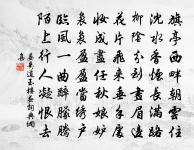 旗亭西畔朝雲住
沈水香煙長滿路
柳陰分到畫眉邊
花片飛來垂手處
妝成盡任秋娘妒
裊裊盈盈當繡戶
臨風一曲醉朦騰
陌上行人凝恨去
晏幾道玉樓春詞典網